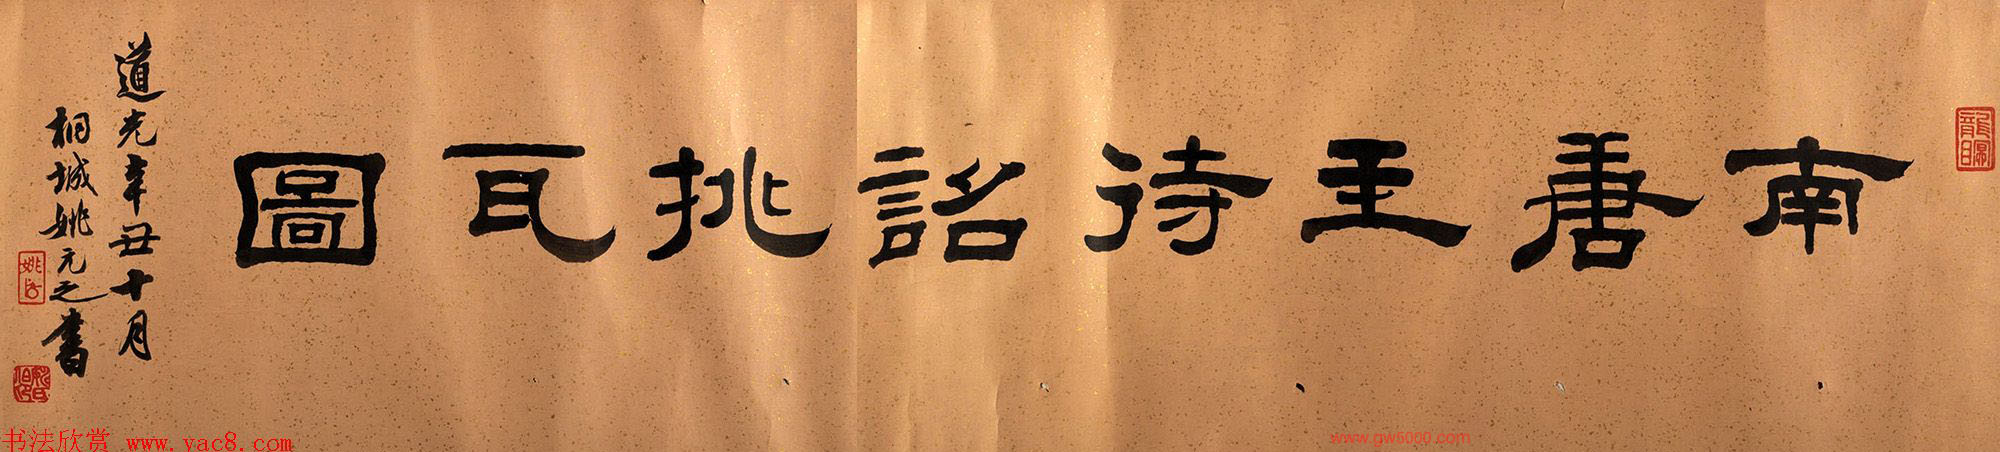 南唐王待詔挑瓦圖
道光辛丑十月
桐城姚元之書
书法欣赏 www.yac8.com
www.gw6000.com